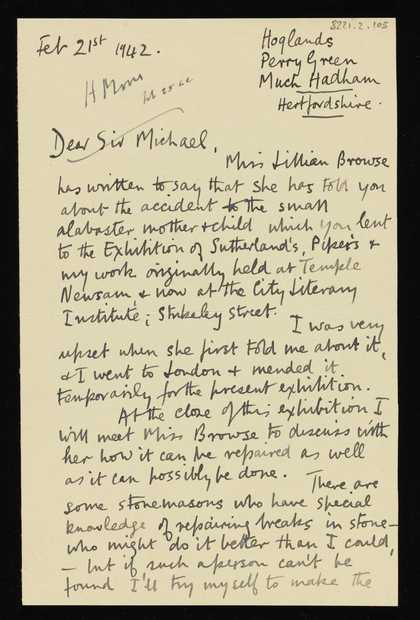 8221.2.105
Feb 21st 1942.
Hoglands
Perry Green
Much Hadham
Hertfordshire.
H Moore
Dear Sir Michael,
Miss Lillian Browse
has written to say that she has told you
about the accident to the small
alabaster mother & child which you lent
to the Exhibition of Sutherland's, Piper's &
my work originally held at Temple
Newsam, & now at the City Literary
Institute; Stukeley Street.
I was very
upset when she first told me about it,
& I went to London & mended it
temporarily for the present exhibition.
At the close of this exhibition I
will meet Miss Browse to discuss with
her how it can be repaired as well
as it can possibly be done.
There are
some stonemasons who have special
knowledge of repairing breaks in stone –
who might do it better than I could,
– but if such a person can't be
found I'll try myself to make the